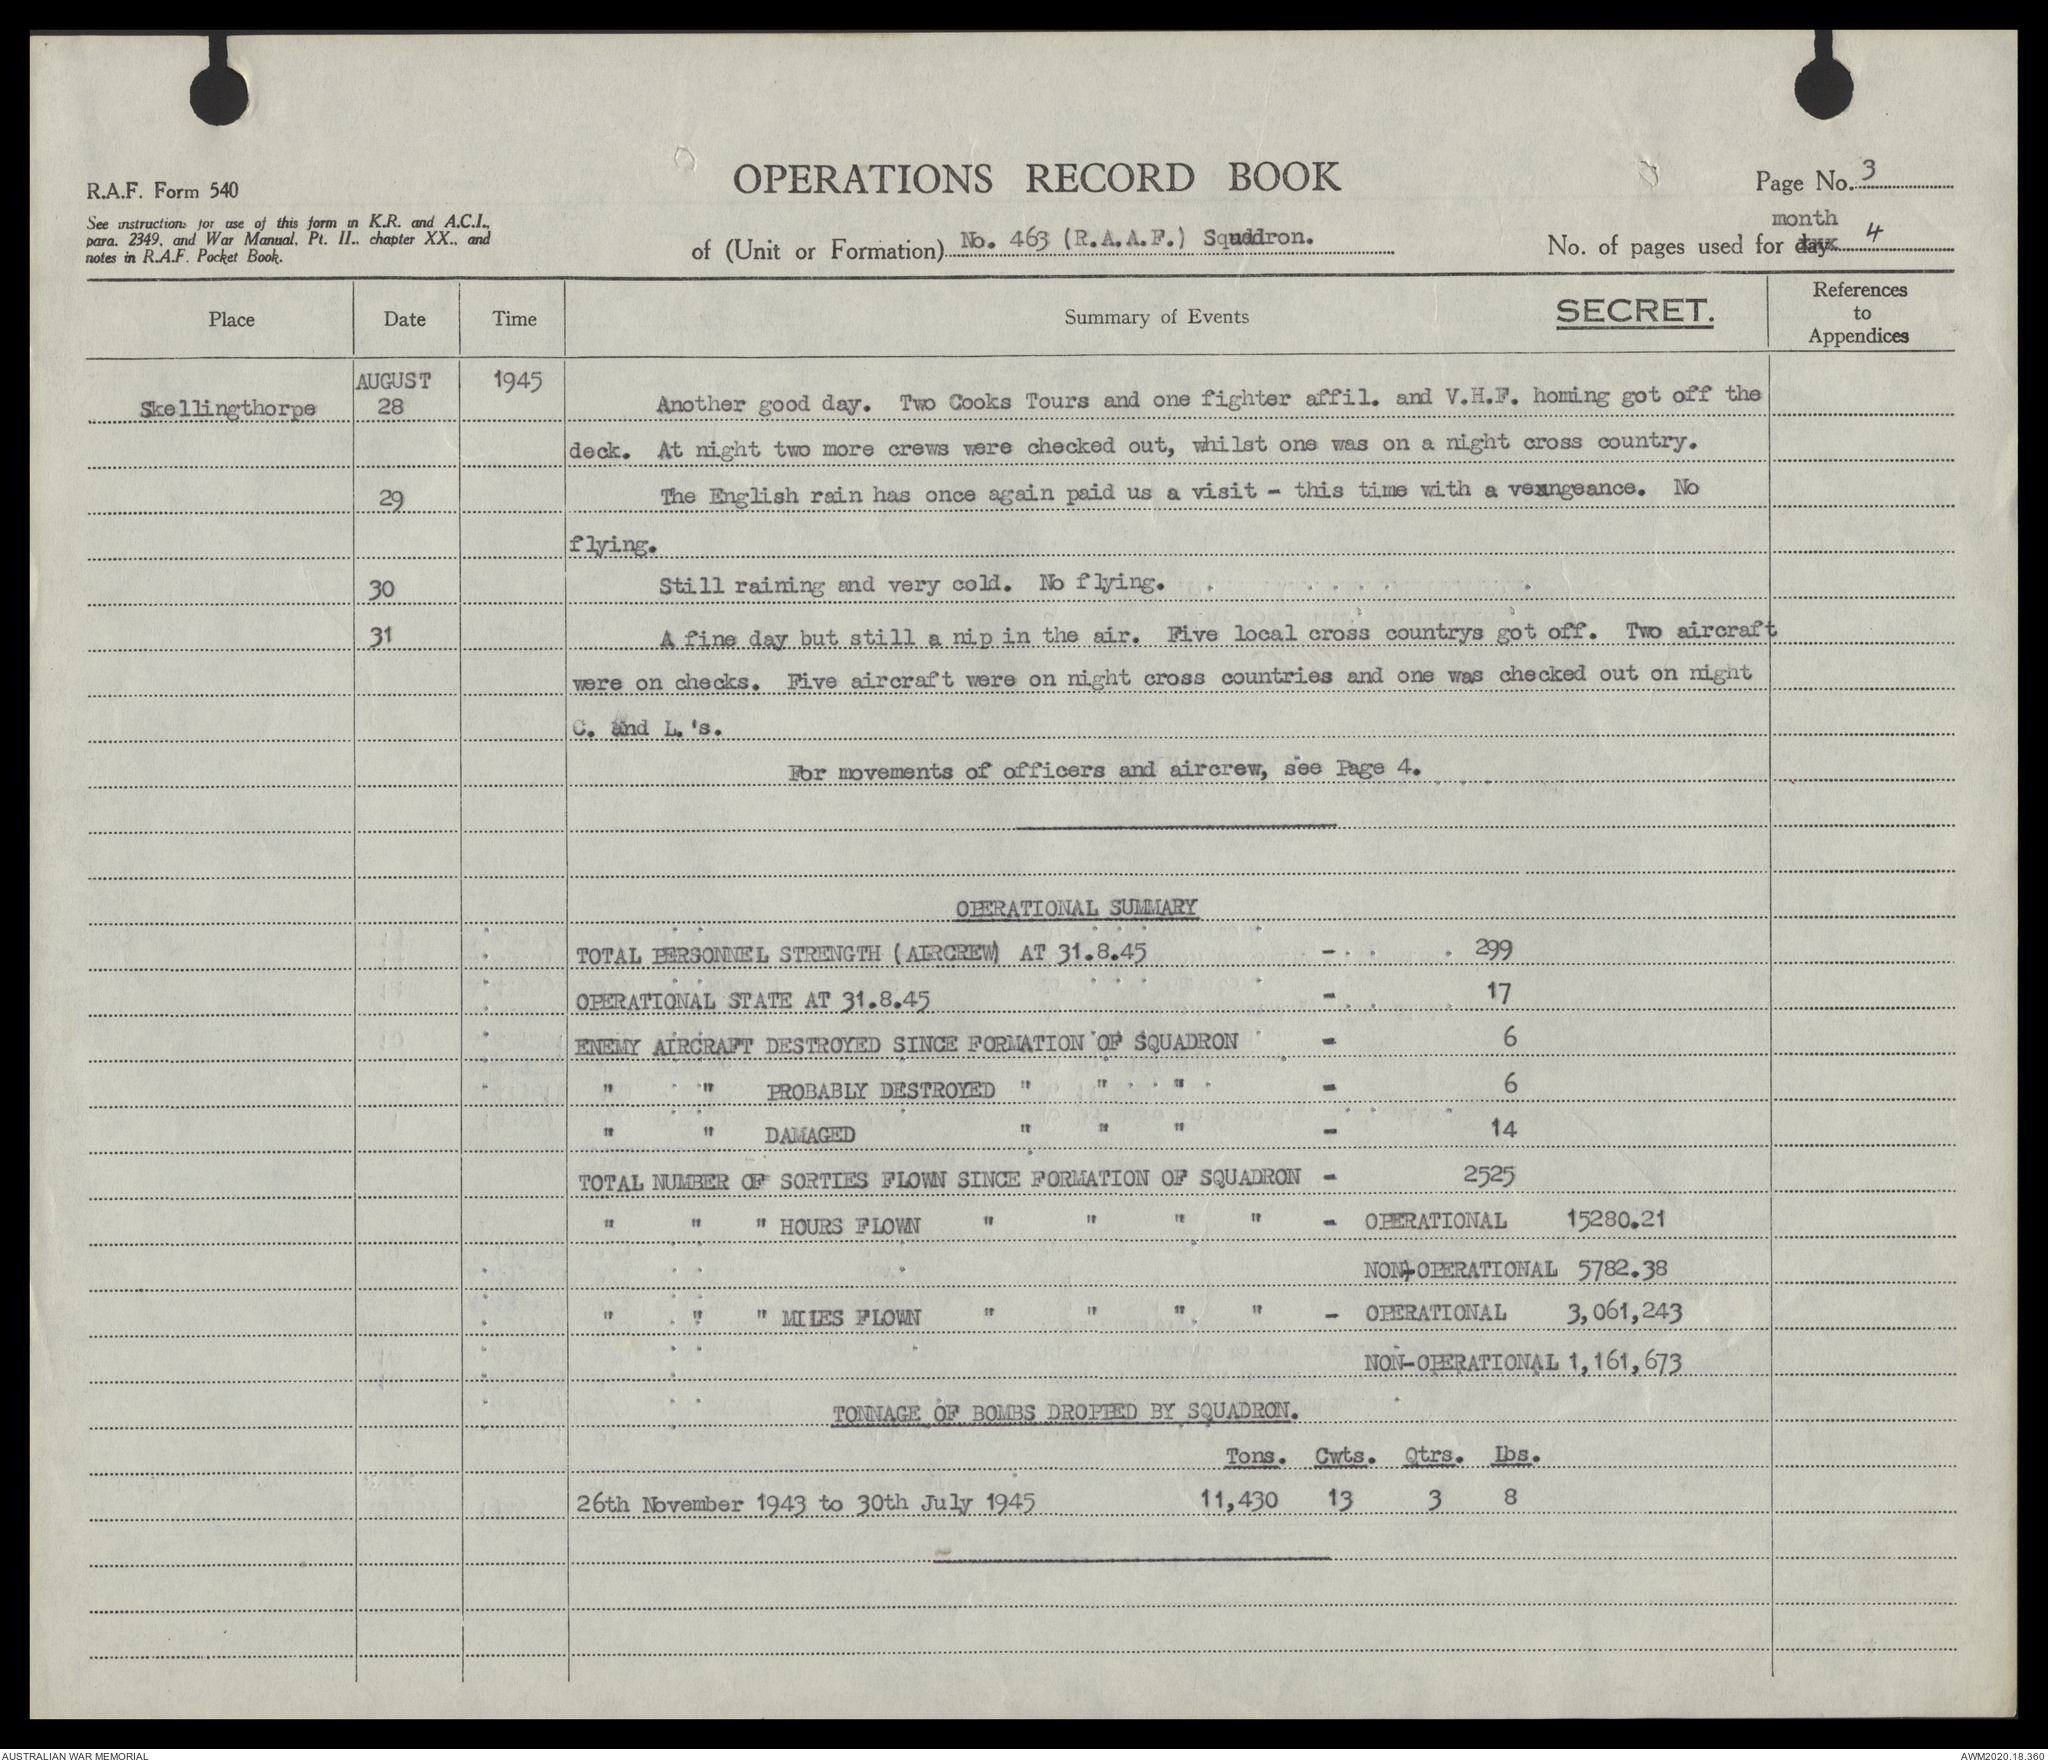 OPERATIONS RECORD BOOK
R.A.F. Form 540
Page No. 3
See instructions for use of this form in K.R. and A.C.I.,
para. 2349, and War Manual, Pt. II., chapter XX., and
notes in R.A.F. Pocket Book.
of (Unit or Formation) No. 463 (R.A.A.F.) Squadron.
month
No. of pages used for day 4
Place Date Time Summary of Events SECRET. References to Appendices
AUGUST 1945
Skellingthorpe 28 Another good day. Two Cooks Tours and one fighter affil. and V.H.F. homing got off the
deck. At night two more crews were checked out, whilst one was on a night cross country.
29 The English rain has once again paid us a visit - this time with a vexngeance. No
flying.
30 Still raining and very cold. No flying.
31 A fine day but still a nip in the air. Five local cross countrys got off. Two aircraft
were on checks. Five aircraft were on night cross countries and one was checked out on night
C. and L.'s.
For movements of officers and aircrew, see Page 4.
OPERATIONAL SUMMARY
TOTAL PERSONNEL STRENGTH (AIRCREW) AT 31.8.45 - 299
OPERATIONAL STATE AT 31.8.45 - 17
ENEMY AIRCRAFT DESTROYED SINCE FORMATION OF SQUADRON - 6
" " PROBABLY DESTROYED " " " - 6
" " DAMAGED " " " - 14
TOTAL NUMBER OF SORTIES FLOWN SINCE FORMATION OF SQUADRON - 2525
" " " HOURS FLOWN " " " " - OPERATIONAL 15280.21
NON-OPERATIONAL 5782.38
" " " MILES FLOWN " " " " - OPERATIONAL 3,061,243
NON-OPERATIONAL 1,161,673
TONNAGE OF BOMBS DROPPED BY SQUADRON.
Tons. Cwts. Qtrs. Lbs.
26th November 1943 to 30th July 1945 11,430 13 3 8
AUSTRALIAN WAR MEMORIAL AWM2020.18.360